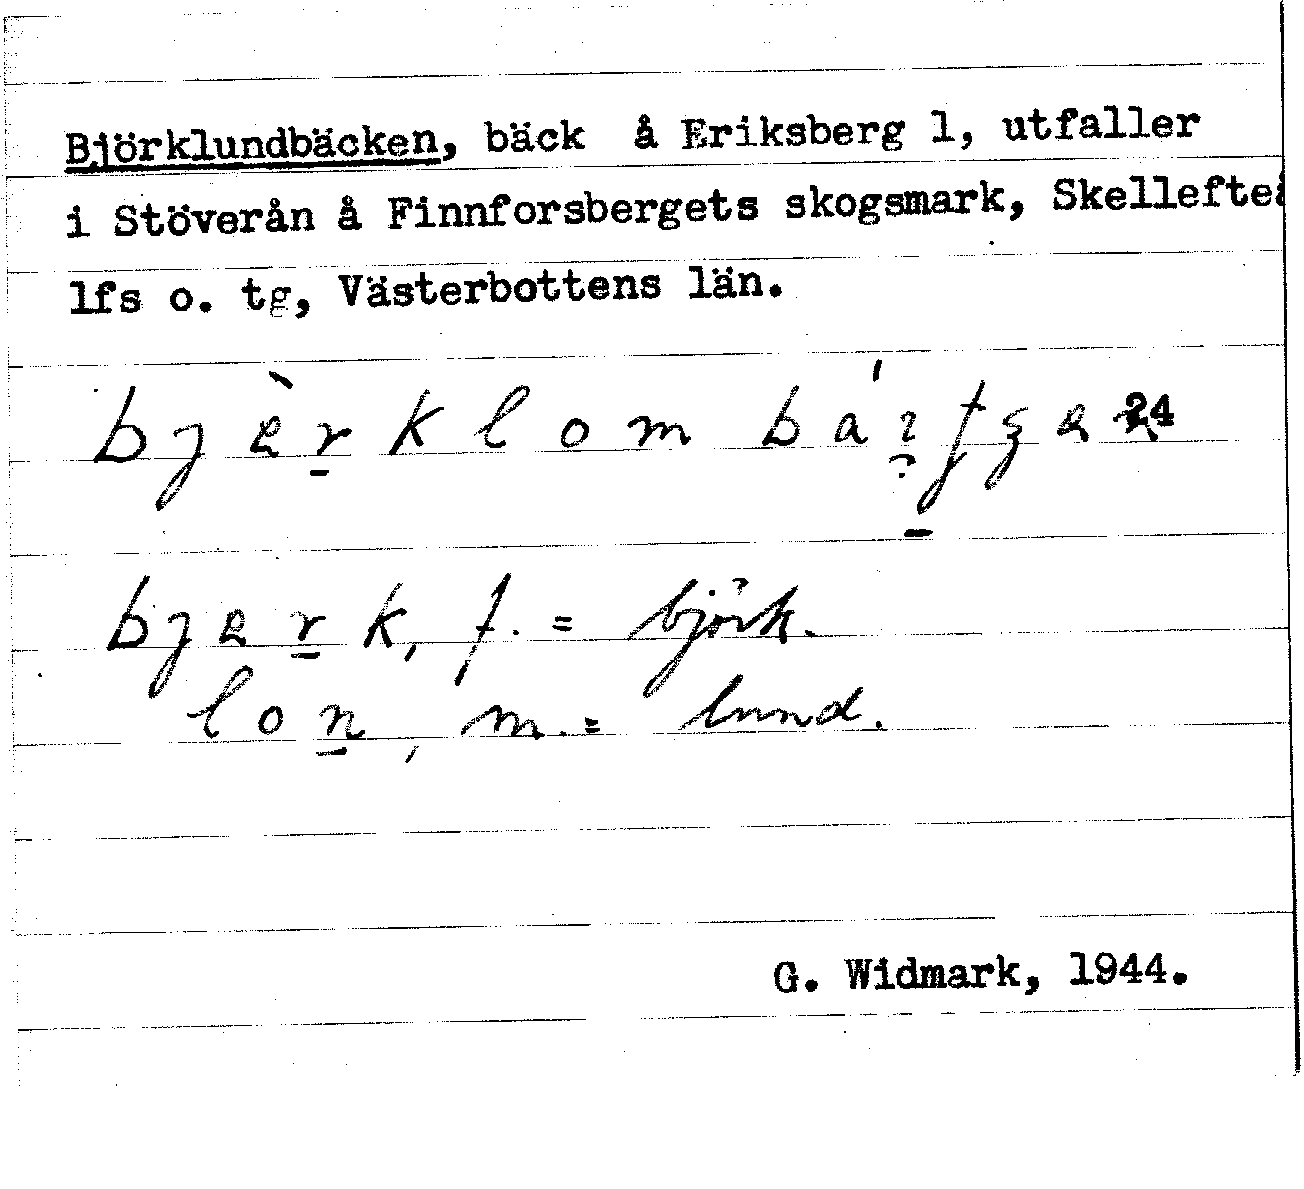 Björklundbäcken, bäck å Eriksberg 1, utfaller
i Stöverån å Finnforsbergets skogsmark, Skellefteå
lfs o. tg, Västerbottens län.
bjærklom
24
bjærk, f. = björk.
lon, m. = lund.
G. Widmark, 1944.